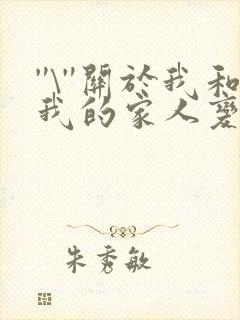 "\"關於我和
我的家人變
朱秀敏